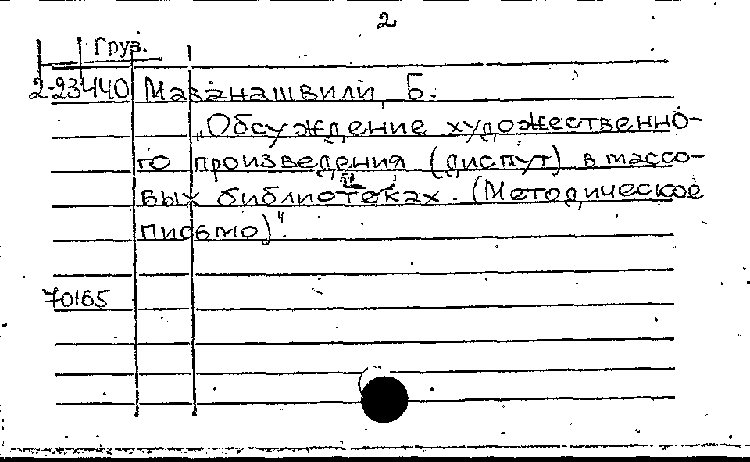 2
Груз.
2-23440 Мазанашвили, Б.
„Обсуждение художественно-
го произведения (диспут) в массо-
вых библиотеках. (Методическое
письмо)“.
70165